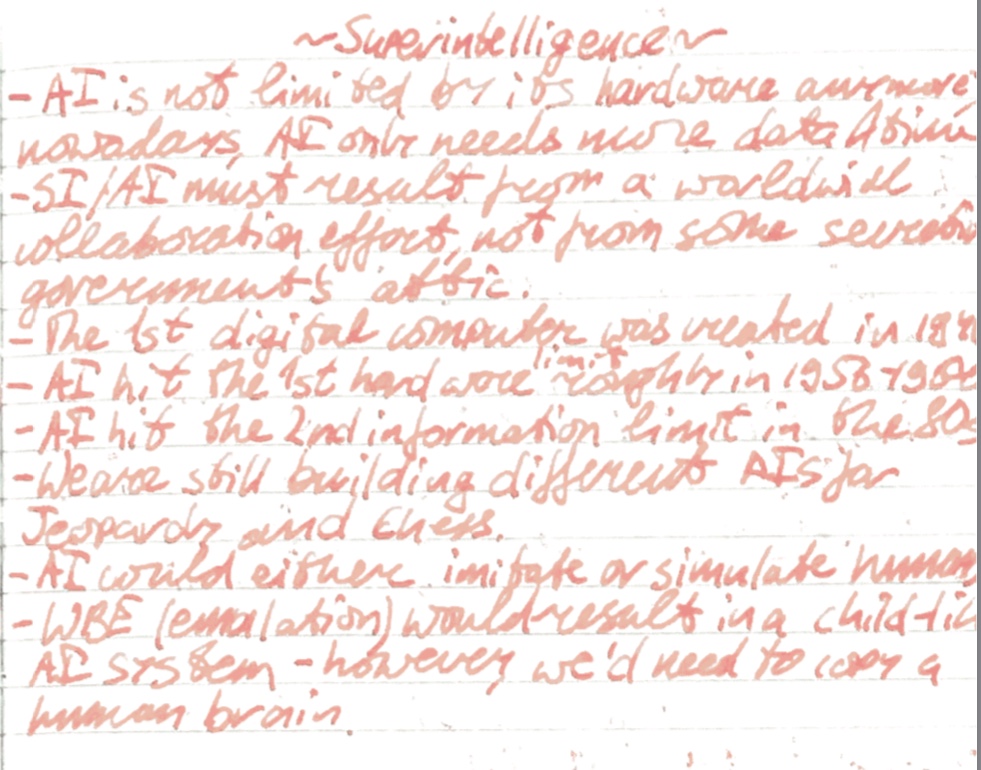 ~Superintelligence~
- AI is not limited by its hardware anymore
nowadays, AI only needs more data & time
- SI/AI must result from a worldwide
collaboration effort, not from some
government's attic.
- The 1st digital computer was created in
- AI hit the 1st hardware "limit" roughly in 1956-
- AI hit the 2nd information limit in the 80s
- We are still building different AIs for
Jeopardy and Chess.
- AI would either imitate or simulate human
- WBE (emulation) would result in a child-
AI system - however, we'd need to copy a
human brain